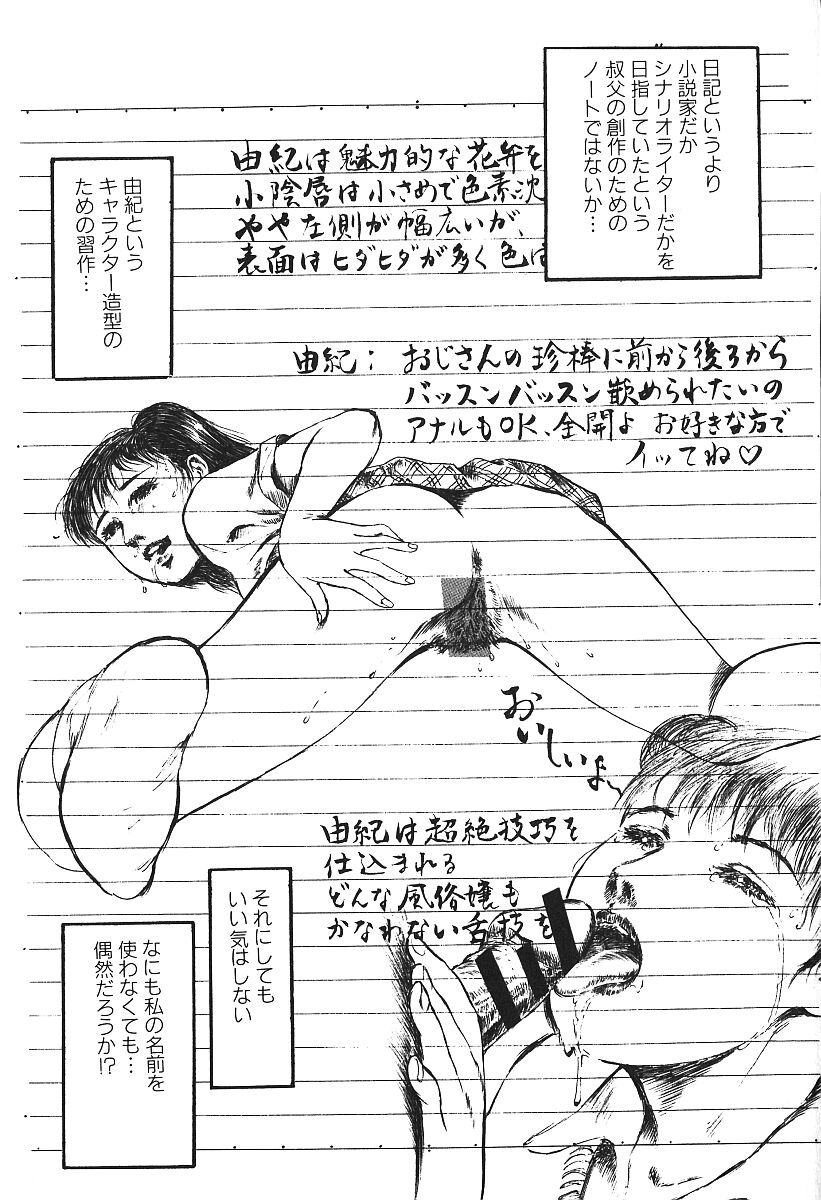 日記というより
小説家だか
シナリオライターだかを
目指していたという
叔父の創作のための
ノートではないか…
由紀は魅力的な花弁を
小陰唇は小さめで色素沈
やや左側が幅広いが、
表面はヒダヒダが多く色は
由紀という
キャラクター造型の
ための習作…
由紀: おじさんの珍棒に前から後ろから
バッスンバッスン嵌められたいの
アナルもOK、全開よ お好きな方で
イッてね♡
おいしいよ〜
由紀は超絶技巧を
仕込まれる
どんな風俗嬢も
かなわない舌技を
それにしても
いい気はしない
なにも私の名前を
使わなくても…
偶然だろうか!?